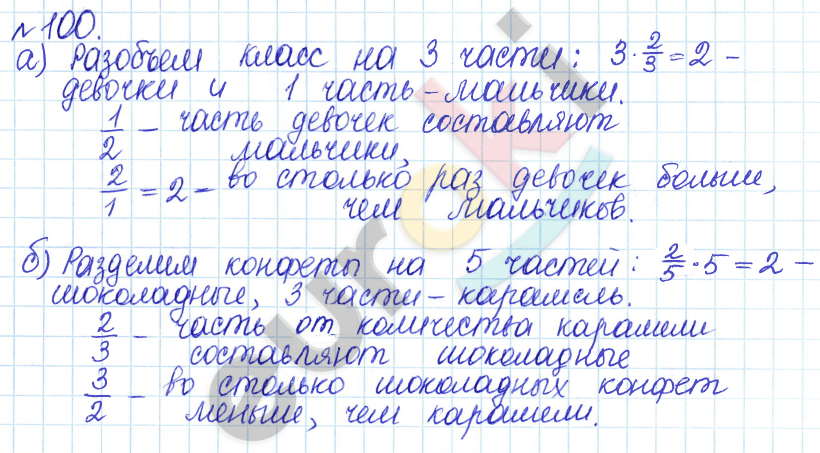 №100.
а) Разобъем класс на 3 части: 3·2/3=2 –
девочки и 1 часть – мальчики.
1/2 – часть девочек составляют
мальчики,
2/1 = 2 – во столько раз девочек больше,
чем мальчиков.
б) Разделим конфеты на 5 частей: 2/5·5=2 –
шоколадные, 3 части – карамель.
2/3 – часть от количества карамели
составляют шоколадные
3/2 – во столько шоколадных конфет
меньше, чем карамели.
euroki